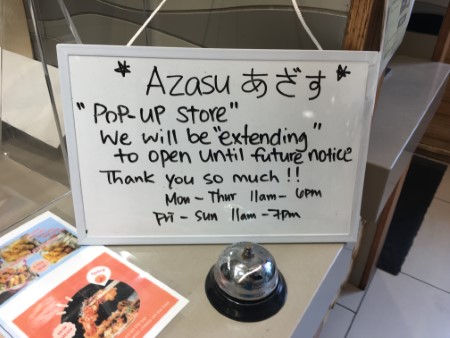 * Azasu あざす *
"Pop-up store"
We will be "extending"
to open until future notice
Thank you so much!!
Mon - Thur 11am - 6pm
Fri - Sun 11am - 7pm